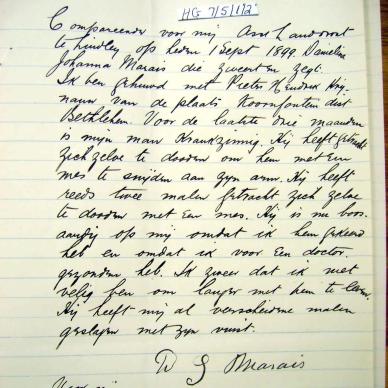 HG 7/5/1/2
Compareerde voor mij Asst Landdrost
te Lindley op heden 1 Sept 1899 Danielina
Johanna Marais die zweert en zegt.
Ik ben gehuwd met Pieter Hendrik Mij-
naur van de plaats Doornfontein dist
Bethlehem. Voor de laatste drie maanden
is mijn man krankzinnig. Hij heeft getracht
zich zelve te dooden om hem met een
mes te snijden aan zijn arm. Hij heeft
reeds twee malen getracht zich zelve
te dooden met een mes. Hij is nu boos-
aardig op mij omdat ik hem gekeerd
heb en omdat ik voor een doctor
gezonden heb. Ik zweer dat ik niet
velig ben om langer met hem te leven.
Hij heeft mij al verscheidene malen
geslagen met zijn vuist.
D J Marais